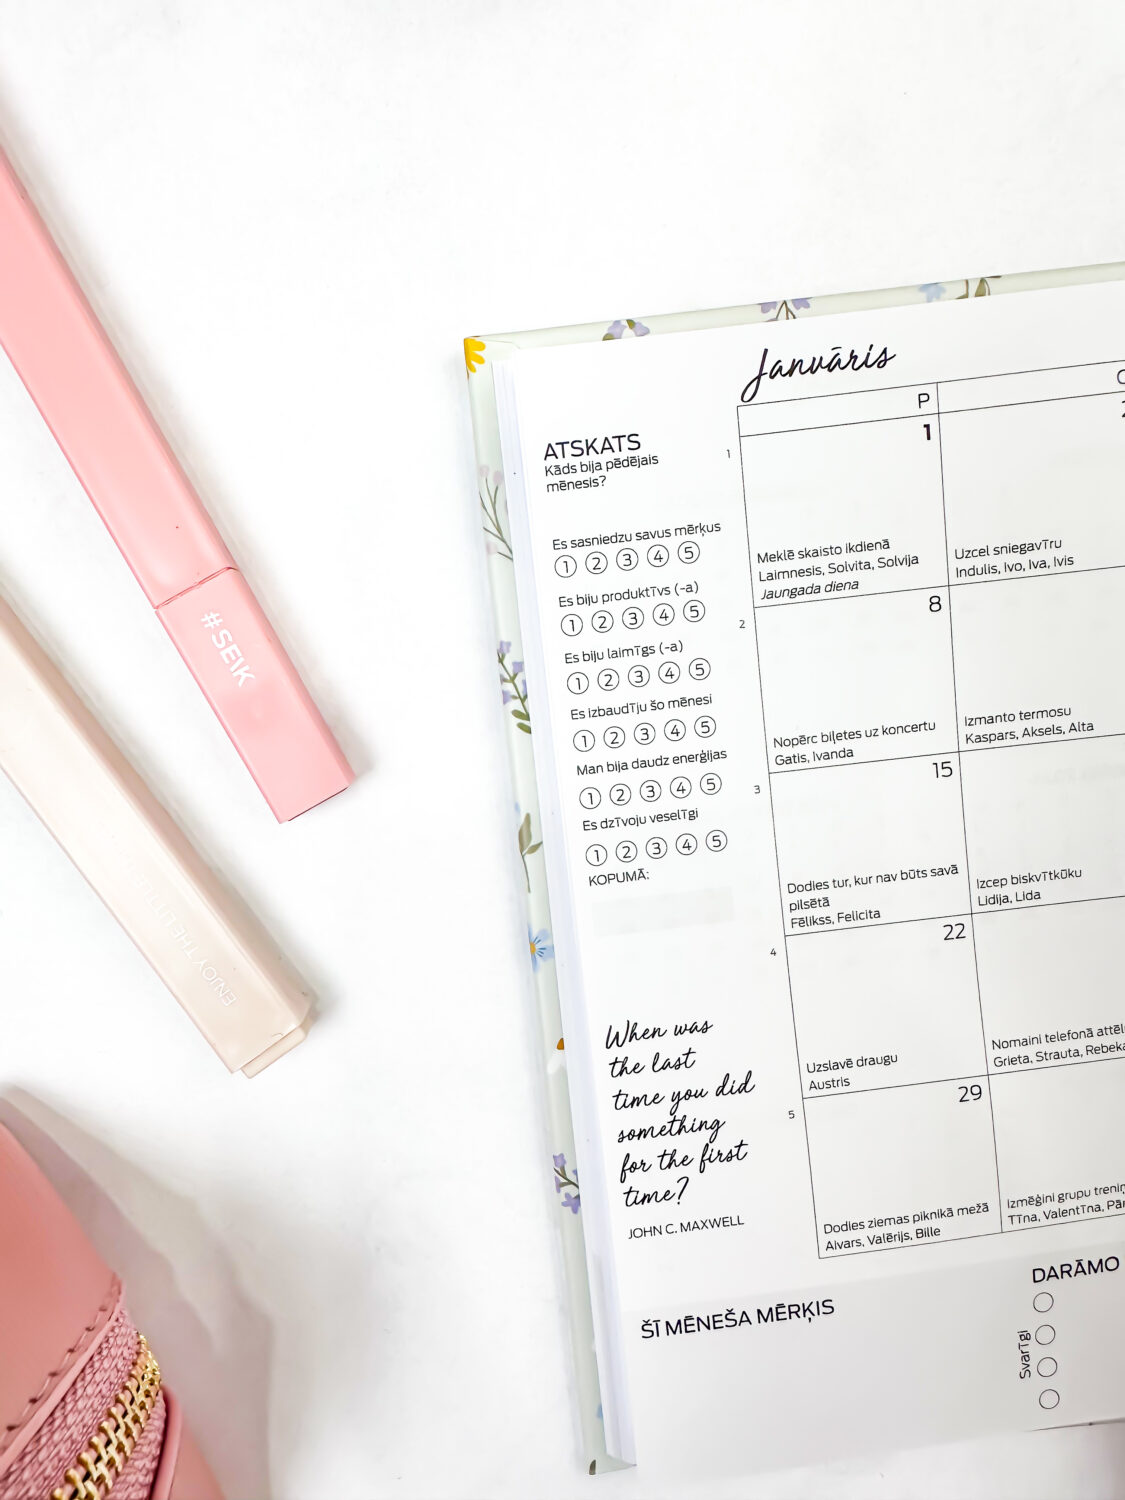 #SEIK
ENJOY THE LITTLE
Janvāris
P
ATSKATS
Kāds bija pēdējais
mēnesis?
Es sasniedzu savus mērķus
1 2 3 4 5
Es biju produktīvs (-a)
1 2 3 4 5
Es biju laimīgs (-a)
1 2 3 4 5
Es izbaudīju šo mēnesi
1 2 3 4 5
Man bija daudz enerģijas
1 2 3 4 5
Es dzīvoju veselīgi
1 2 3 4 5
KOPUMĀ:
When was
the last
time you did
something
for the first
time?
JOHN C. MAXWELL
1
1
Meklē skaisto ikdienā
Laimnesis, Solvita, Solvija
Jaungada diena
Uzcel sniegavīru
Indulis, Ivo, Iva, Ivis
2
8
Nopērc biļetes uz koncertu
Gatis, Ivanda
Izmanto termosu
Kaspars, Aksels, Alta
3
15
Dodies tur, kur nav būts savā
pilsētā
Fēlikss, Felicita
Izcep biskvītkūku
Lidija, Lida
4
22
Uzslavē draugu
Austris
Nomaini telefonā
Grieta, Strauta,
5
29
Dodies ziemas piknikā mežā
Aivars, Valērijs, Bille
Izmēģini grupu
Tīna, Valentīna,
ŠĪ MĒNEŠA MĒRĶIS
DARĀMO
Svarīgi